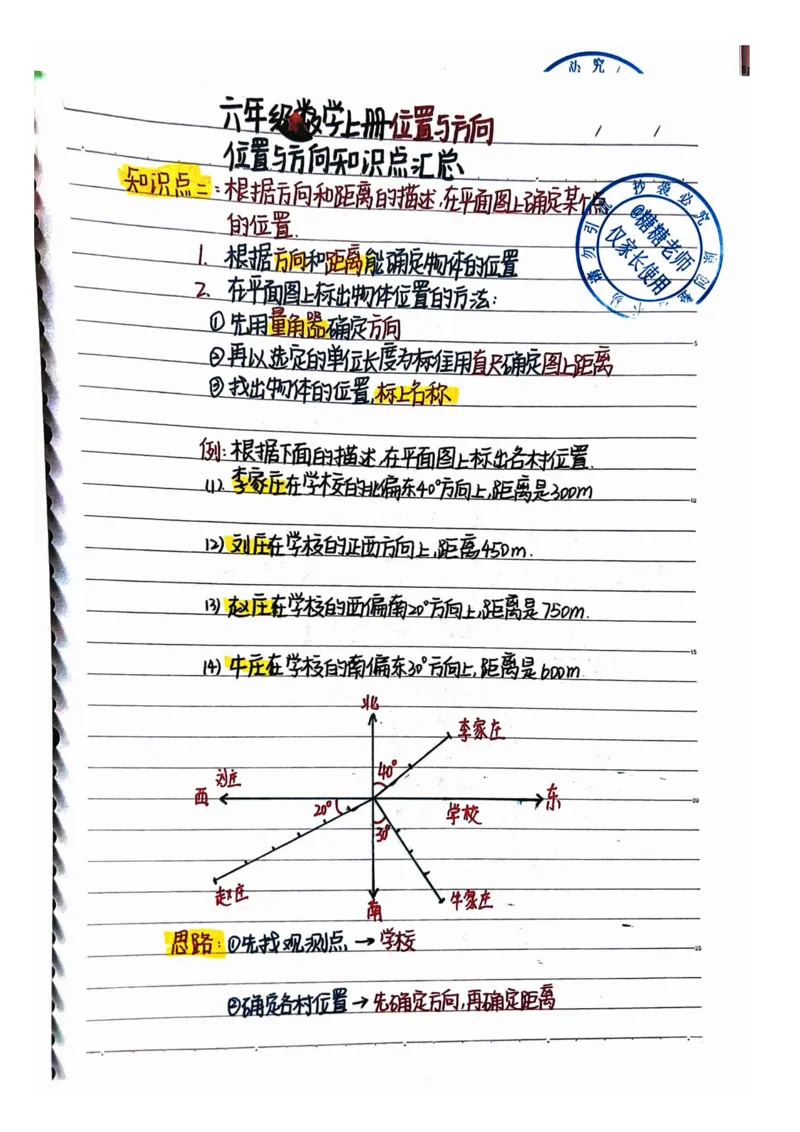 六年级数学上册位置与方向
位置与方向知识点汇总
知识点二:根据方向和距离的描述,在平面图上确定某个点
的位置.
1. 根据方向和距离能确定物体的位置
2. 在平面图上标出物体位置的方法:
①先用量角器确定方向
②再以选定的单位长度为标准用直尺确定图上距离
③找出物体的位置,标上名称
例:根据下面的描述,在平面图上标出各村位置.
(1) 李家庄在学校的北偏东40°方向上,距离是300m
(2) 刘庄在学校的正西方向上,距离450m.
(3) 赵庄在学校的西偏南20°方向上,距离是750m.
(4) 牛庄在学校的南偏东30°方向上,距离是600m
北
李家庄
40°
刘庄
西
东
20°
学校
30°
赵庄
牛家庄
南
思路:①先找观测点 → 学校
②确定各村位置 → 先确定方向,再确定距离
抄袭必究
@糖糖老师
仅家长使用
5
10
15
20
25